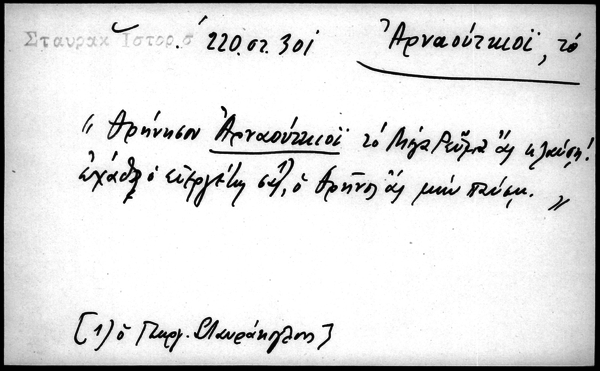 Σταυρακ Ἱστορ.σ. 220.στ.301 Ἀρναούτκιοϊ, τό
"Θρήνησον Ἀρναούτκιοϊ τό Μέγα Ρεῦμα ἄς κλαύσῃ!
ἐχάθη ὁ εὐεργέτης σου, ὁ θρῆνος ἄς μήν παύσῃ."
[1) ὁ Γεωργ. Σταυράκογλους]